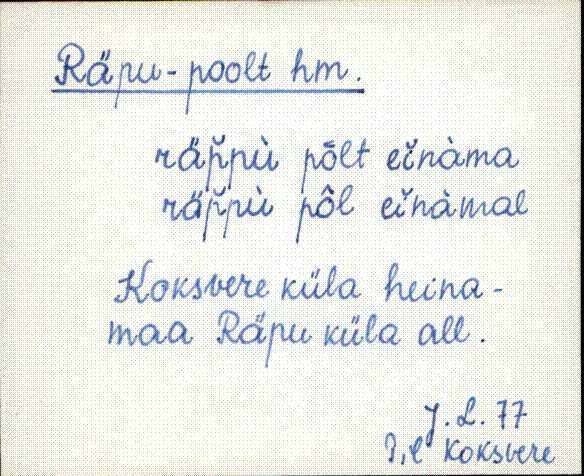 Räpu-poolt hm.
räp̆pù pō̬lt eĭnàma
räp̆pù pô̬l eĭnàmal
Koksvere küla heina-
maa Räpu küla all.
J. L. 77
Koksvere